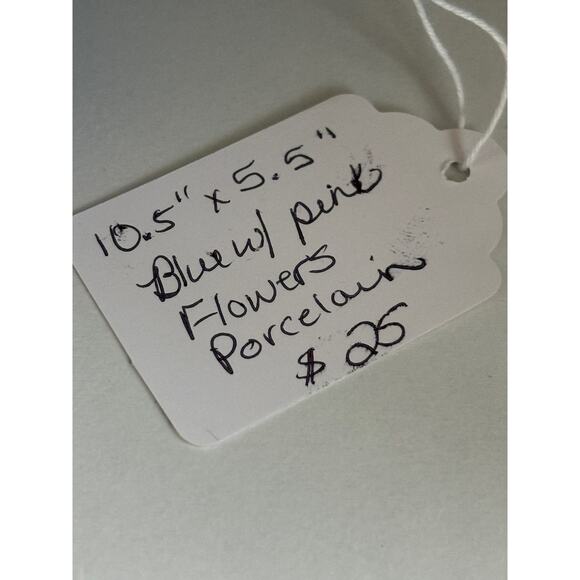 10.5" x 5.5"
Blue w/ pink
Flowers
Porcelain
$ 25